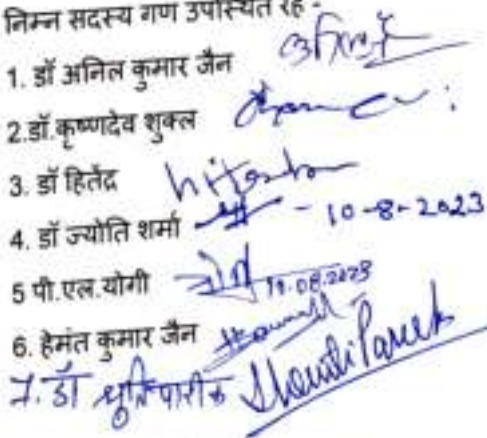 निम्न सदस्य गण उपस्थित रहे -
1. डॉ अनिल कुमार जैन
2.डॉ.कृष्णदेव शुक्ल
3. डॉ हितेंद्र hitendra
4. डॉ ज्योति शर्मा - 10-8-2023
5 पी.एल.योगी 10.08.2023
6. हेमंत कुमार जैन
7. डॉ श्रुति पारीक Shruti Pareek